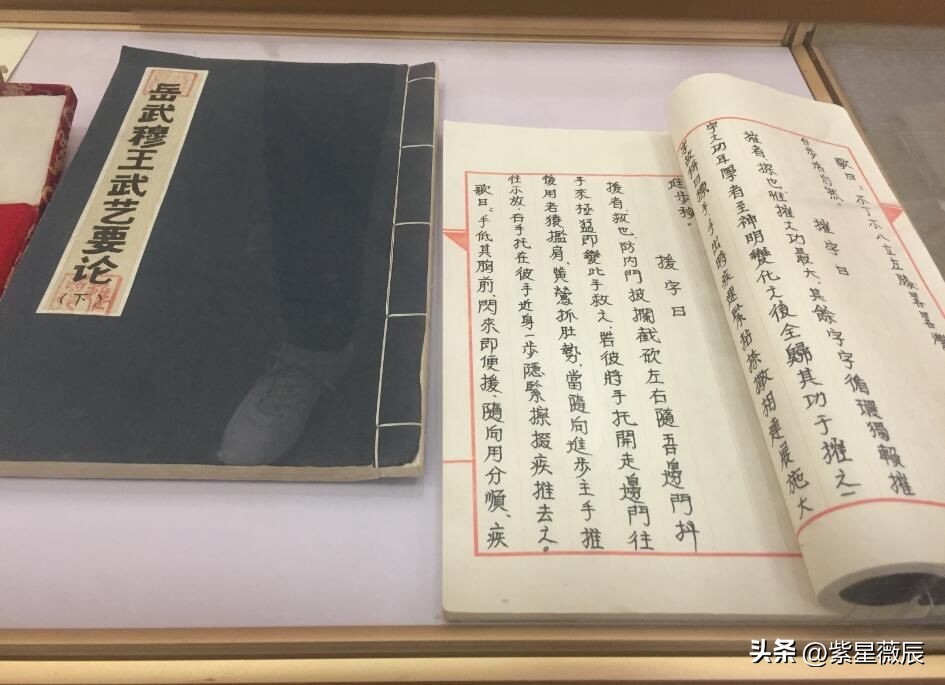 岳武穆王武艺要论
(下)
歌曰:不丁不八立左
自步法自然。 摧字曰
摧者,摋也,惟摧之功最大,其餘字字循環獨賴摧
字之功耳學者至神明變化之後全歸其功于摧之一
進步移。
援字曰
援者,救也,防內門披攔截砍左右隨吾邊門抖
手來極猛即變此手救之,若彼將手托開走邊門往
後用老猿搵肩,黄鶯抓肚勢,當隨向進步主手推
往示放,右手托在彼手近身一步隱緊擦掇疾推去之。
歌曰:手低其胸前,閃來即便援,隨向用分順、疾
头条 @紫星薇辰